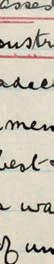 assed
ustr
adec
men
best
wa
of un